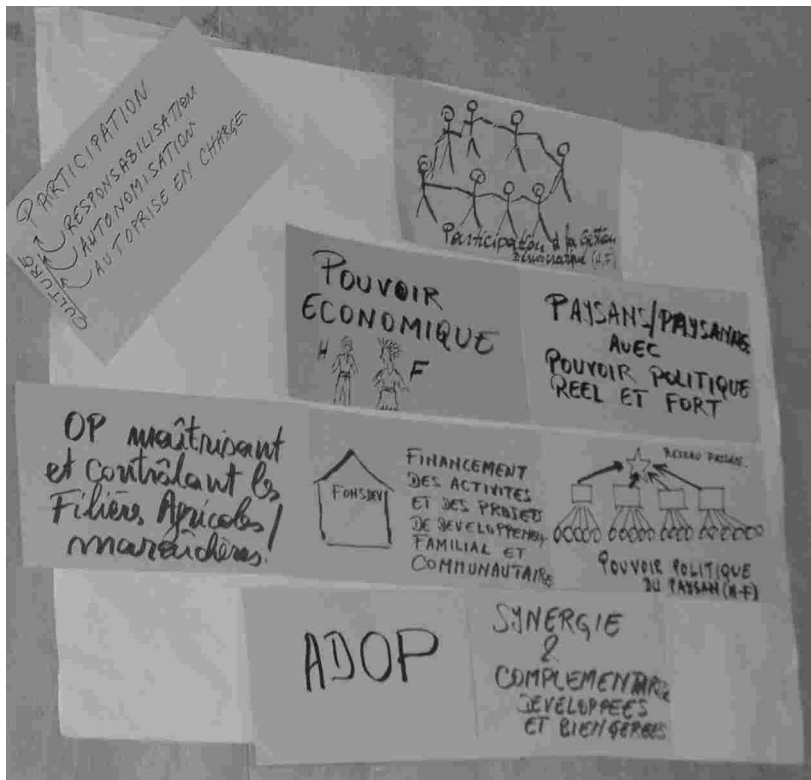 PARTICIPATION
RESPONSABILISATION
AUTONOMISATION
AUTOPRISE EN CHARGE
CULTURO
Participation à la Gestion
Démocratique (H,F)
POUVOIR
ECONOMIQUE
H F
PAYSANS/PAYSANNE
AVEC
POUVOIR POLITIQUE
REEL ET FORT
OP maîtrisant
et contrôlant les
Filières Agricoles/
maraîchères!
FONSDEV
FINANCEMENT
DES ACTIVITES
ET DES PROJETS
DE DEVELOPPEMENT
FAMILIAL ET
COMMUNAUTAIRE
RESEAU PAYSAN
POUVOIR POLITIQUE
DU PAYSAN (H-F)
ADOP
SYNERGIE
&
COMPLEMENTARITE
DEVELOPPEES
ET BIEN GEREES